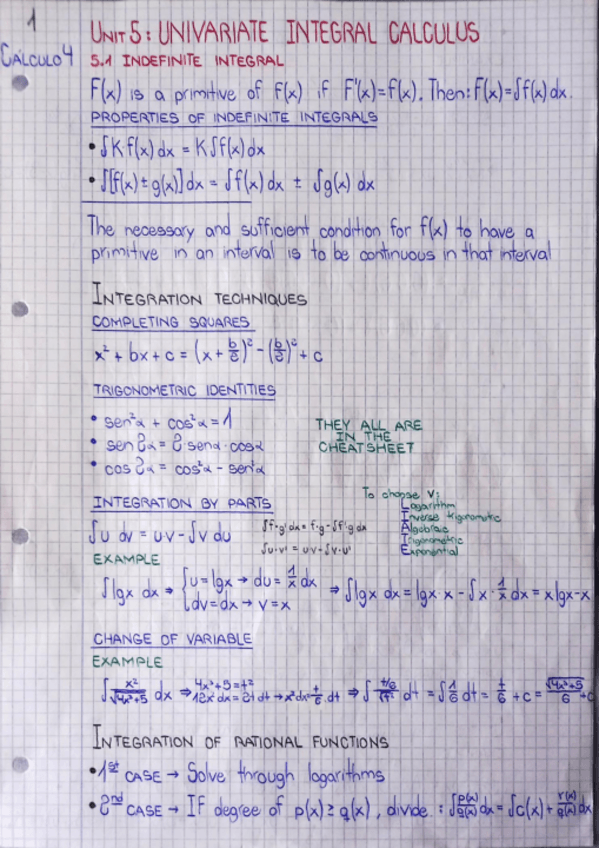 1
CÁLCULO 4
UNIT 5: UNIVARIATE INTEGRAL CALCULUS
5.1 INDEFINITE INTEGRAL
F(x) is a primitive of f(x) if F'(x)=f(x). Then: F(x)=∫f(x)dx.
PROPERTIES OF INDEFINITE INTEGRALS
• ∫K·f(x)dx = K∫f(x)dx
• ∫[f(x)±g(x)]dx = ∫f(x)dx ± ∫g(x)dx
The necessary and sufficient condition for f(x) to have a
primitive in an interval is to be continuous in that interval
INTEGRATION TECHNIQUES
COMPLETING SQUARES
x² + bx + c = (x + b/2)² - (b/2)² + c
TRIGONOMETRIC IDENTITIES
• sen²α + cos²α = 1
• sen2α = 2·senα·cosα
• cos2α = cos²α - sen²α
THEY ALL ARE
IN THE
CHEATSHEET
INTEGRATION BY PARTS
∫u dv = uv - ∫v du
∫f·g'dx = f·g - ∫f'g dx
∫u·v' = uv - ∫v·u'
To choose v:
Logarithm
Inverse trigonometric
Algebraic
Trigonometric
Exponential
EXAMPLE
∫lgx dx ⇒ {u=lgx → du = 1/x dx
dv=dx → v=x
⇒ ∫lgx dx = lgx·x - ∫x·1/x dx = xlgx-x
CHANGE OF VARIABLE
EXAMPLE
∫x²/√4x³+5 dx ⇒ 4x³+5=t²
12x²dx=2tdt → x²dx=t/6·dt ⇒ ∫t/6/√t² dt = ∫1/6 dt = t/6 + c = √4x³+5/6 + c
INTEGRATION OF RATIONAL FUNCTIONS
• 1st CASE → Solve through logarithms
• 2nd CASE → If degree of p(x) ≥ q(x), divide. : ∫p(x)/q(x) dx = ∫c(x) + r(x)/q(x) dx